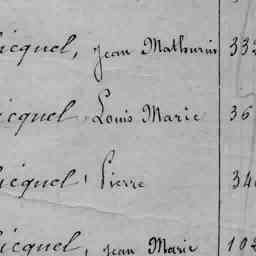 icquel, jean Mathurin 332
icquel, Louis Marie 36
icquel, Pierre 34
icquel, jean Marie 102